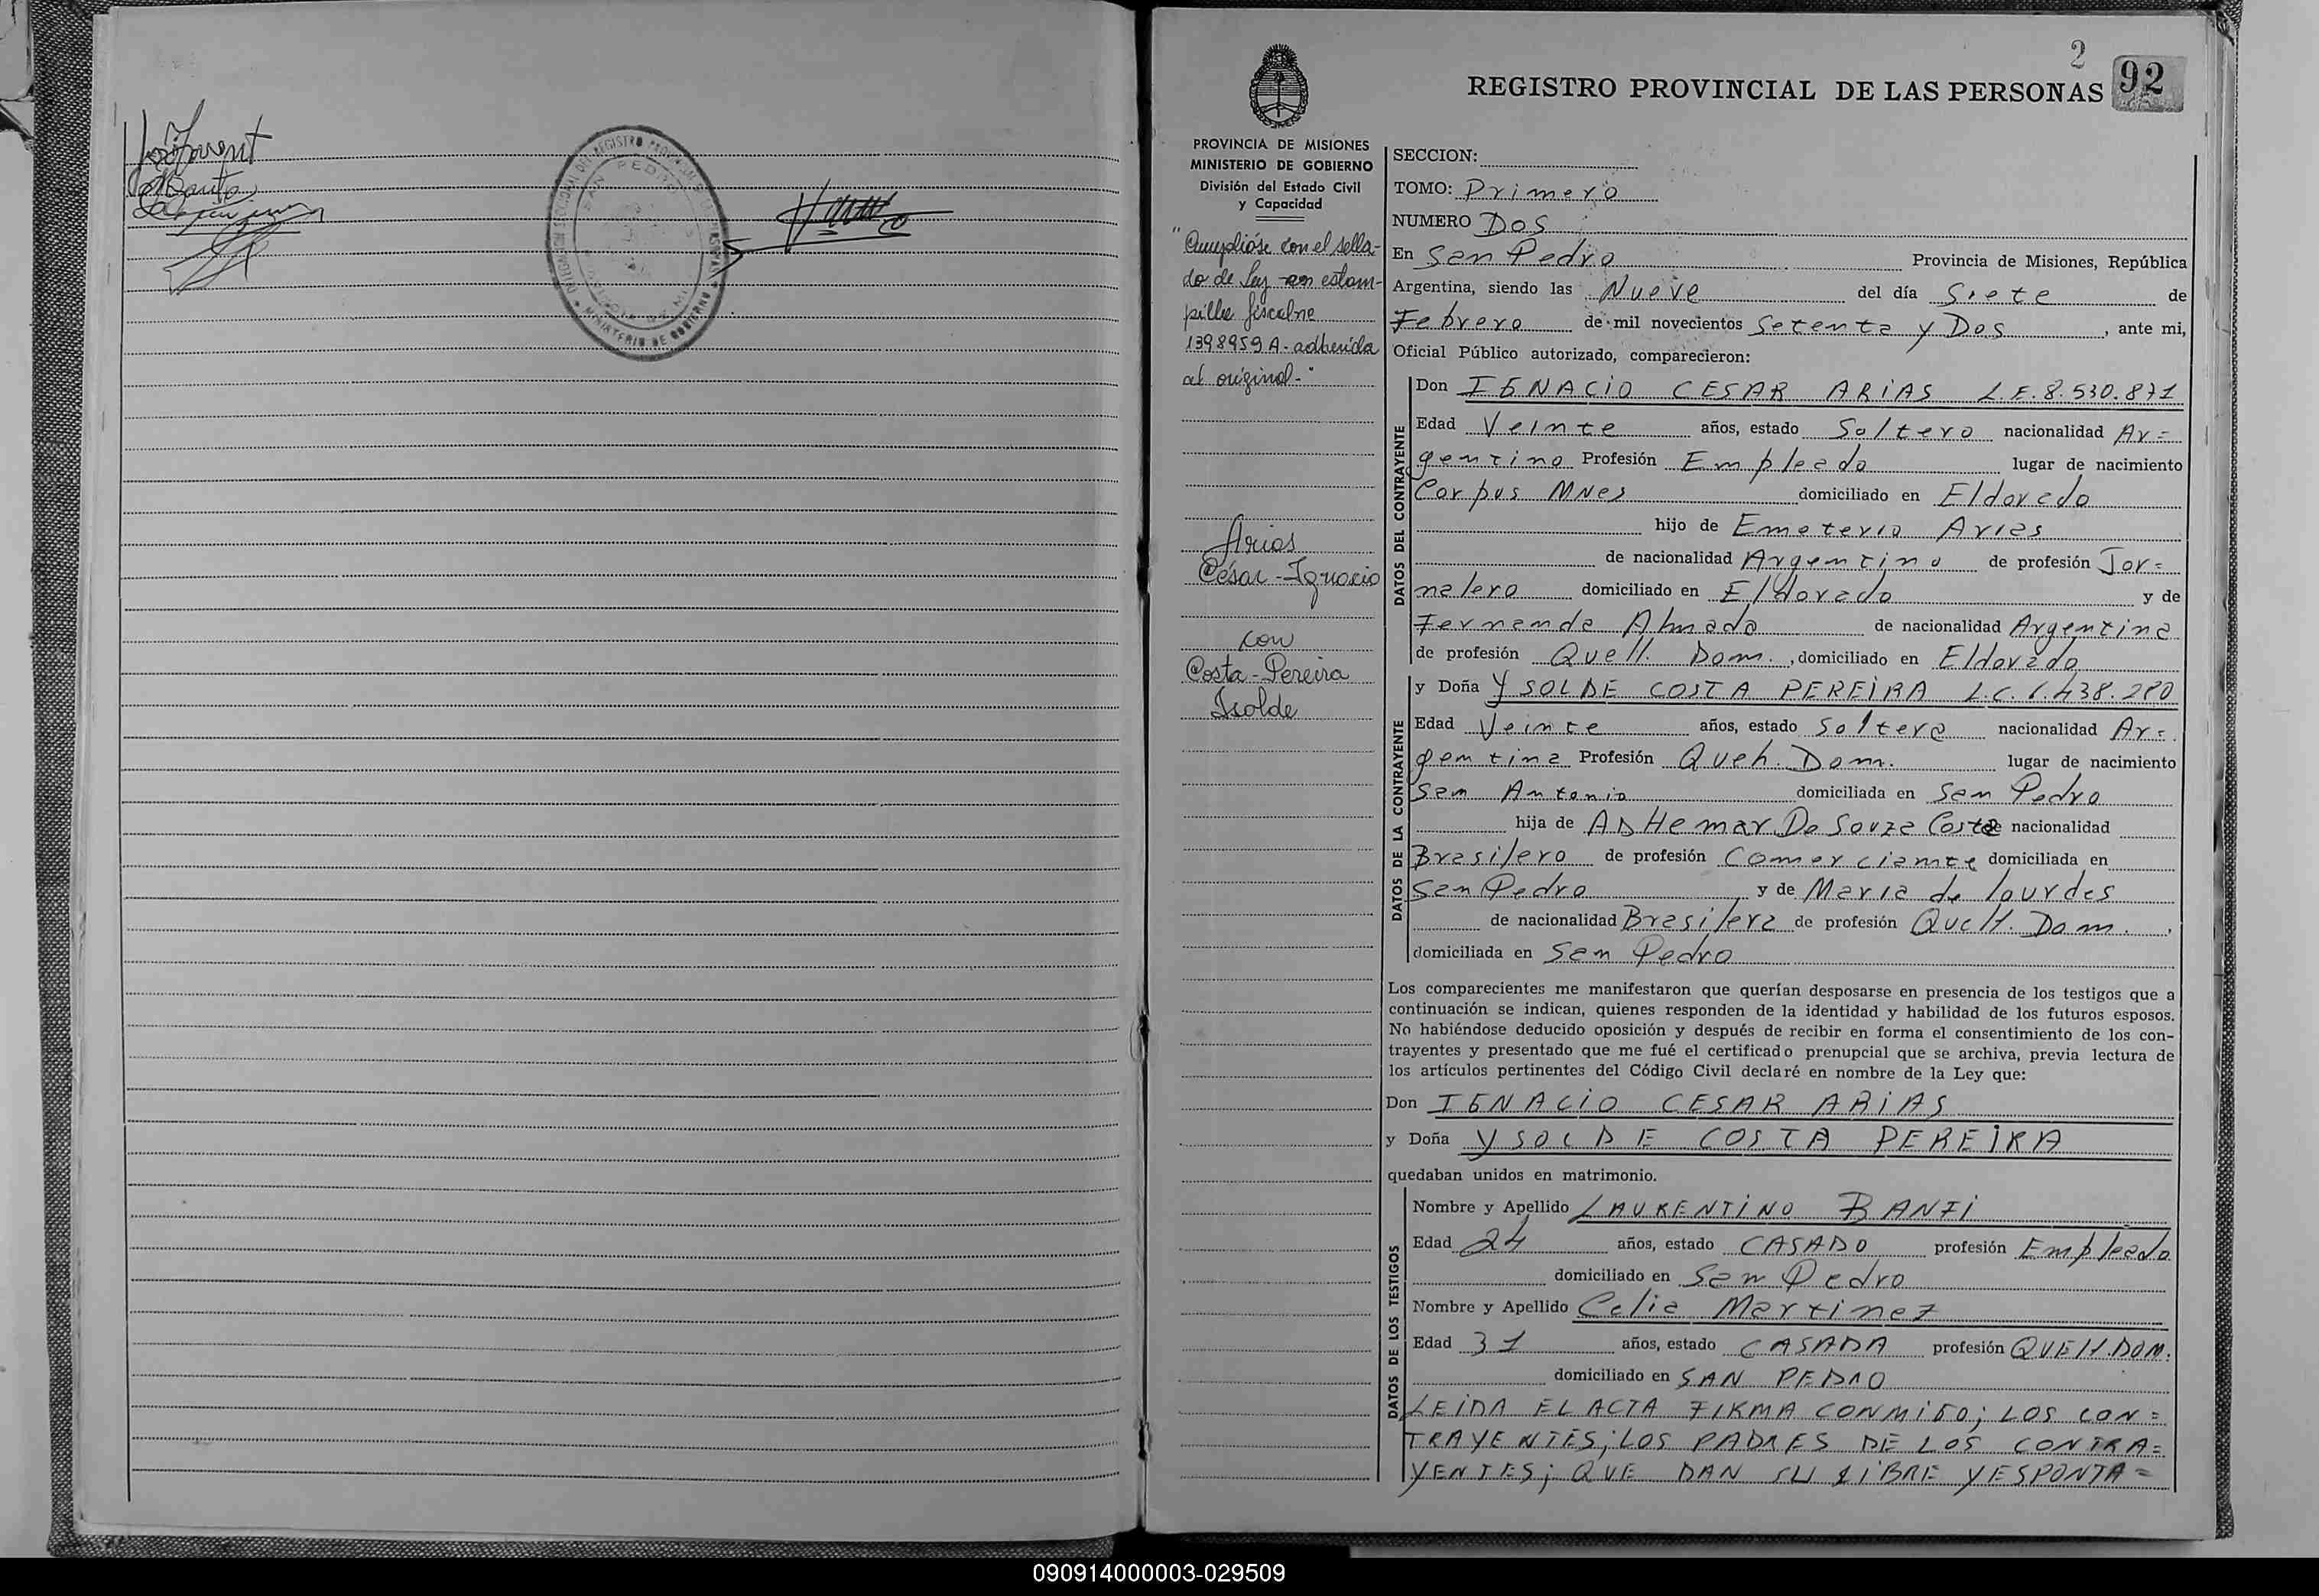 DELEGACION SECCIONAL DEL REGISTRO PROVINCIAL DE LAS PERSONAS
SAN PEDRO
MINISTERIO DE GOBIERNO
2
92
REGISTRO PROVINCIAL DE LAS PERSONAS
PROVINCIA DE MISIONES
MINISTERIO DE GOBIERNO
División del Estado Civil
y Capacidad
"Cumplióse con el sella-
do de ley con estam-
pilla fiscal nº
1398959 A - adherida
al original-"
Arias
César - Ignacio
con
Costa - Pereira
Isolde
SECCION:
TOMO: Primero
NUMERO Dos
En San Pedro Provincia de Misiones, República
Argentina, siendo las Nueve del día Siete de
Febrero de mil novecientos Setenta y Dos, ante mi,
Oficial Público autorizado, comparecieron:
DATOS DEL CONTRAYENTE
Don IGNACIO CESAR ARIAS L.E. 8.530.871
Edad Veinte años, estado Soltero nacionalidad Ar=
gentino Profesión Empleado lugar de nacimiento
Corpus Mnes domiciliado en Eldorado
hijo de Emeterio Arias
de nacionalidad Argentino de profesión Jor=
nalero domiciliado en Eldorado y de
Fernanda Almada de nacionalidad Argentina
de profesión Queh. Dom., domiciliado en Eldorado
DATOS DE LA CONTRAYENTE
y Doña YSOLDE COSTA PEREIRA L.C. 6.438.280
Edad Veinte años, estado Soltera nacionalidad Ar=
gentina Profesión Queh. Dom. lugar de nacimiento
San Antonio domiciliada en San Pedro
hija de ADHemar De Souza Costa de nacionalidad
Brasilero de profesión Comerciante domiciliada en
San Pedro y de Maria de lourdes
de nacionalidad Brasilera de profesión QueH. Dom.,
domiciliada en San Pedro
Los comparecientes me manifestaron que querían desposarse en presencia de los testigos que a
continuación se indican, quienes responden de la identidad y habilidad de los futuros esposos.
No habiéndose deducido oposición y después de recibir en forma el consentimiento de los con-
trayentes y presentado que me fué el certificado prenupcial que se archiva, previa lectura de
los artículos pertinentes del Código Civil declaré en nombre de la Ley que:
Don IGNACIO CESAR ARIAS
y Doña YSOLDE COSTA PEREIRA
quedaban unidos en matrimonio.
DATOS DE LOS TESTIGOS
Nombre y Apellido LAURENTINO BANFI
Edad 24 años, estado CASADO profesión Empleado
domiciliado en San Pedro
Nombre y Apellido Celia Martinez
Edad 31 años, estado CASADA profesión QUEH. DOM.
domiciliado en SAN PEDRO
LEIDA EL ACTA FIRMA CONMIGO; LOS CON=
TRAYENTES; LOS PADRES DE LOS CONTRA=
YENTES; QUE DAN SU LIBRE Y ESPONTA=
090914000003-029509